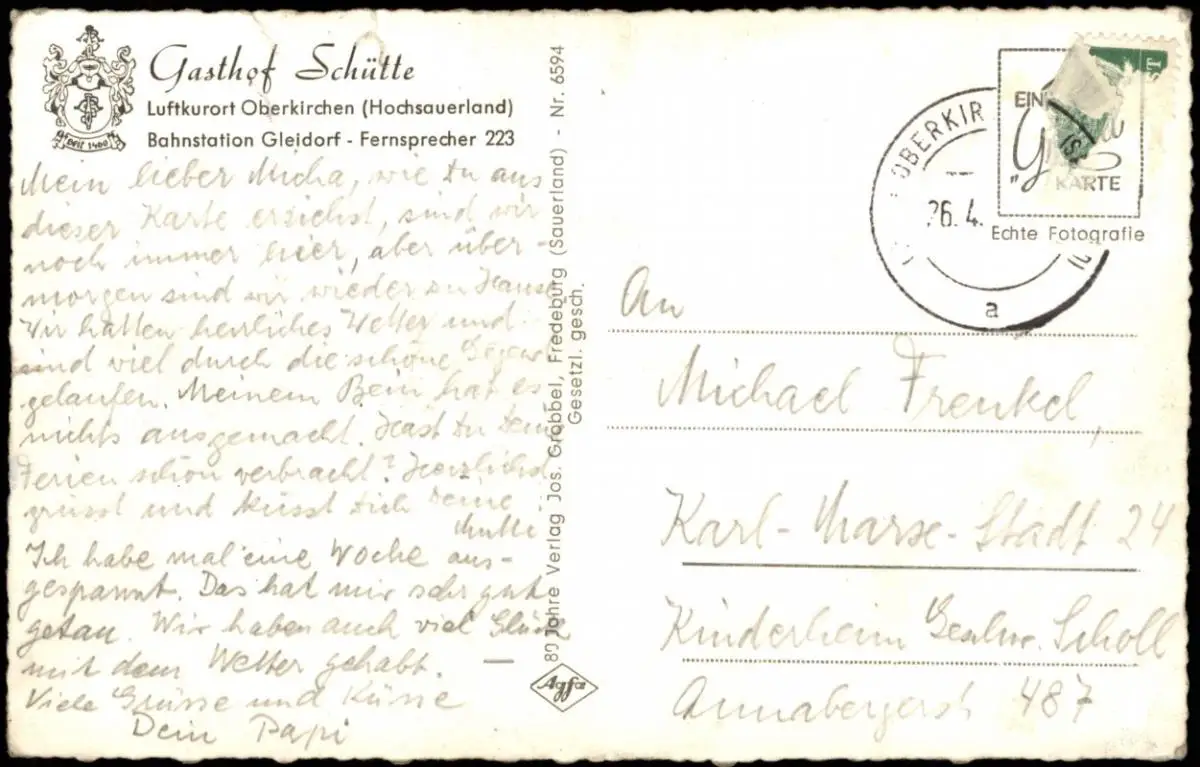 Gasthof Schütte
Luftkurort Oberkirchen (Hochsauerland)
Bahnstation Gleidorf - Fernsprecher 223
SEIT 1460
Mein lieber Micha, wie Du aus
dieser Karte ersiehst, sind wir
noch immer hier, aber über-
morgen sind wir wieder zu Hause
Wir hatten herrliches Wetter und
sind viel durch die schöne Gegend
gelaufen. Meinem Bein hat es
nichts ausgemacht. Hast Du Deine
Ferien schön verbracht? Herzlichst
grüsst und küsst Dich Deine
Mutti
Ich habe mal eine Woche aus-
gespannt. Das hat mir sehr gut
getan. Wir haben auch viel Glück
mit dem Wetter gehabt. —
Viele Grüsse und Küsse
Dein Papi
80 Jahre Verlag Jos. Grobbel, Fredeburg (Sauerland) - Nr. 6594
Gesetzl. gesch.
Agfa
OBERKIR
26.4.
a
EIN
"
KARTE
Echte Fotografie
An
Michael Frenkel,
Karl-Marx-Stadt 24
Kinderheim Geschw. Scholl
Annabergerst 487